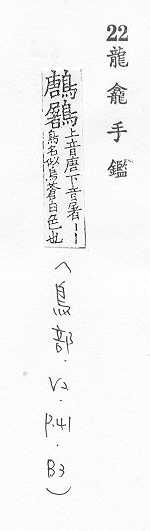 22 龍龕手鑑
鶶鷵上音唐下音屠丨丨
鳥名似烏蒼白色也
(鳥部.V2.P.41.B3)